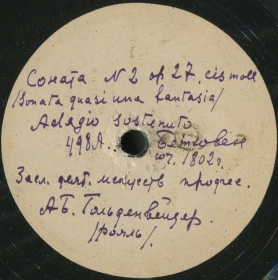 Соната N 2 op 27. cis moll
/Sonata quasi una fantasia/
Adagio sostenuto.
498А. Бетховен
соч. 1802 г.
Засл. деят. искусств профес.
А.Б. Гольденвейзер.
/рояль/.